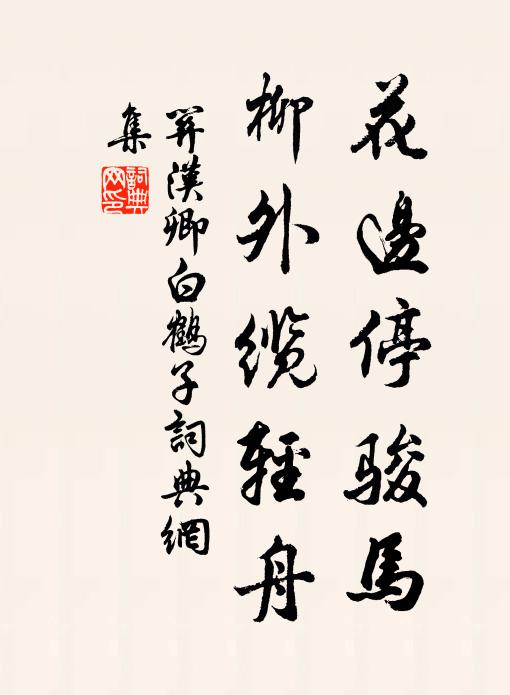 花邊停駿馬
柳外纜輕舟
關漢卿白鶴子詞典網
集
詞典網印